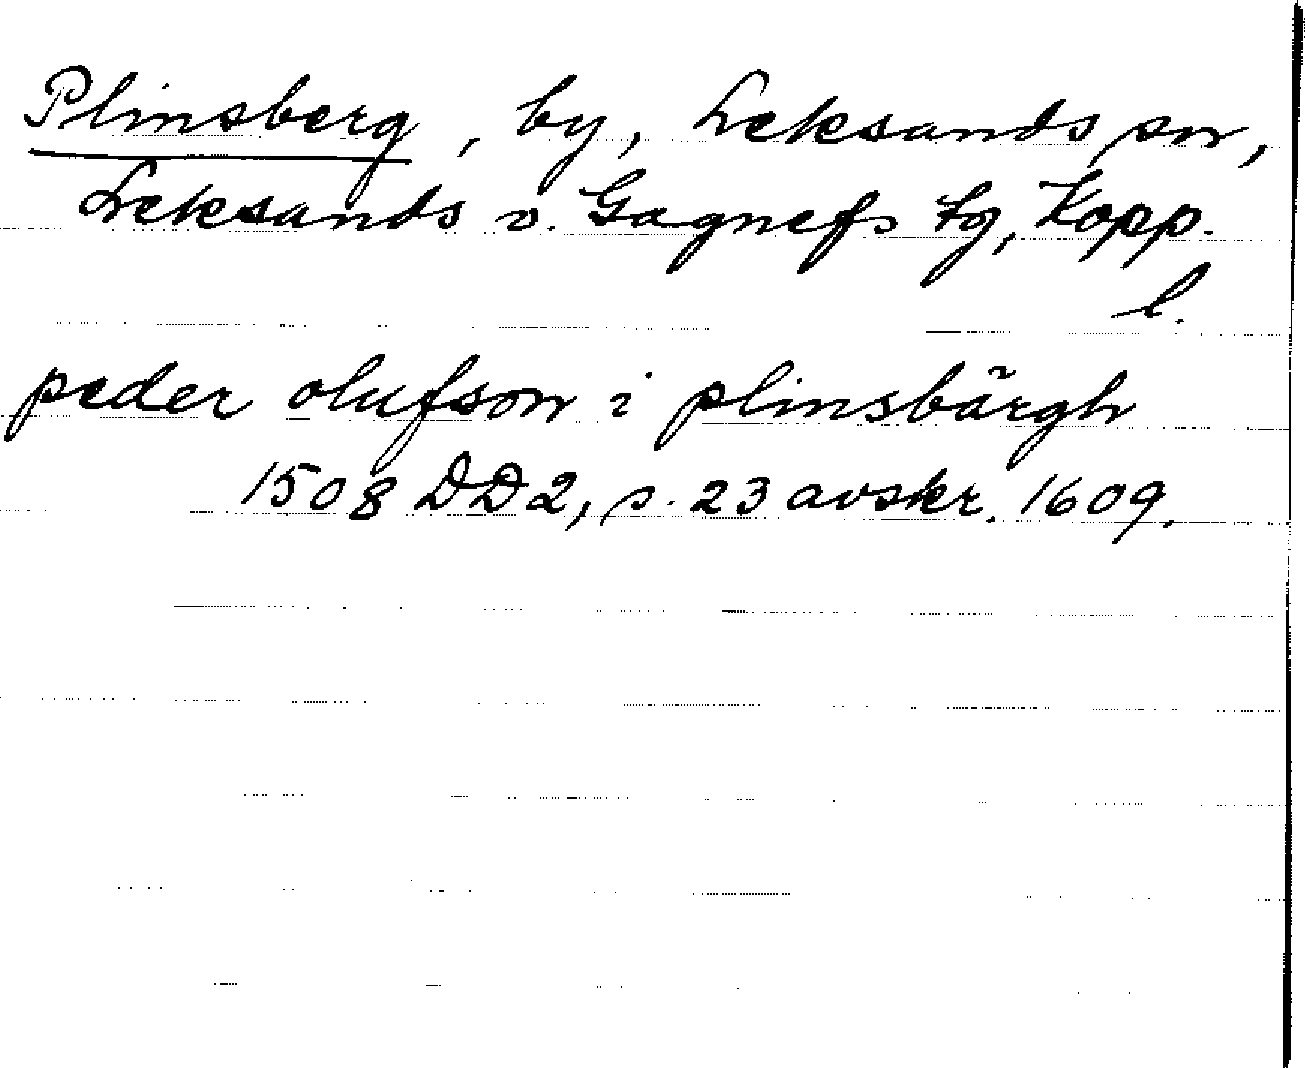 Plinsberg, by, Leksands sn,
Leksands o. Gagnefs tg, Kopp.
l.
peder olufson i plinsbärgh
1508 DD2, s. 23 avskr. 1609.